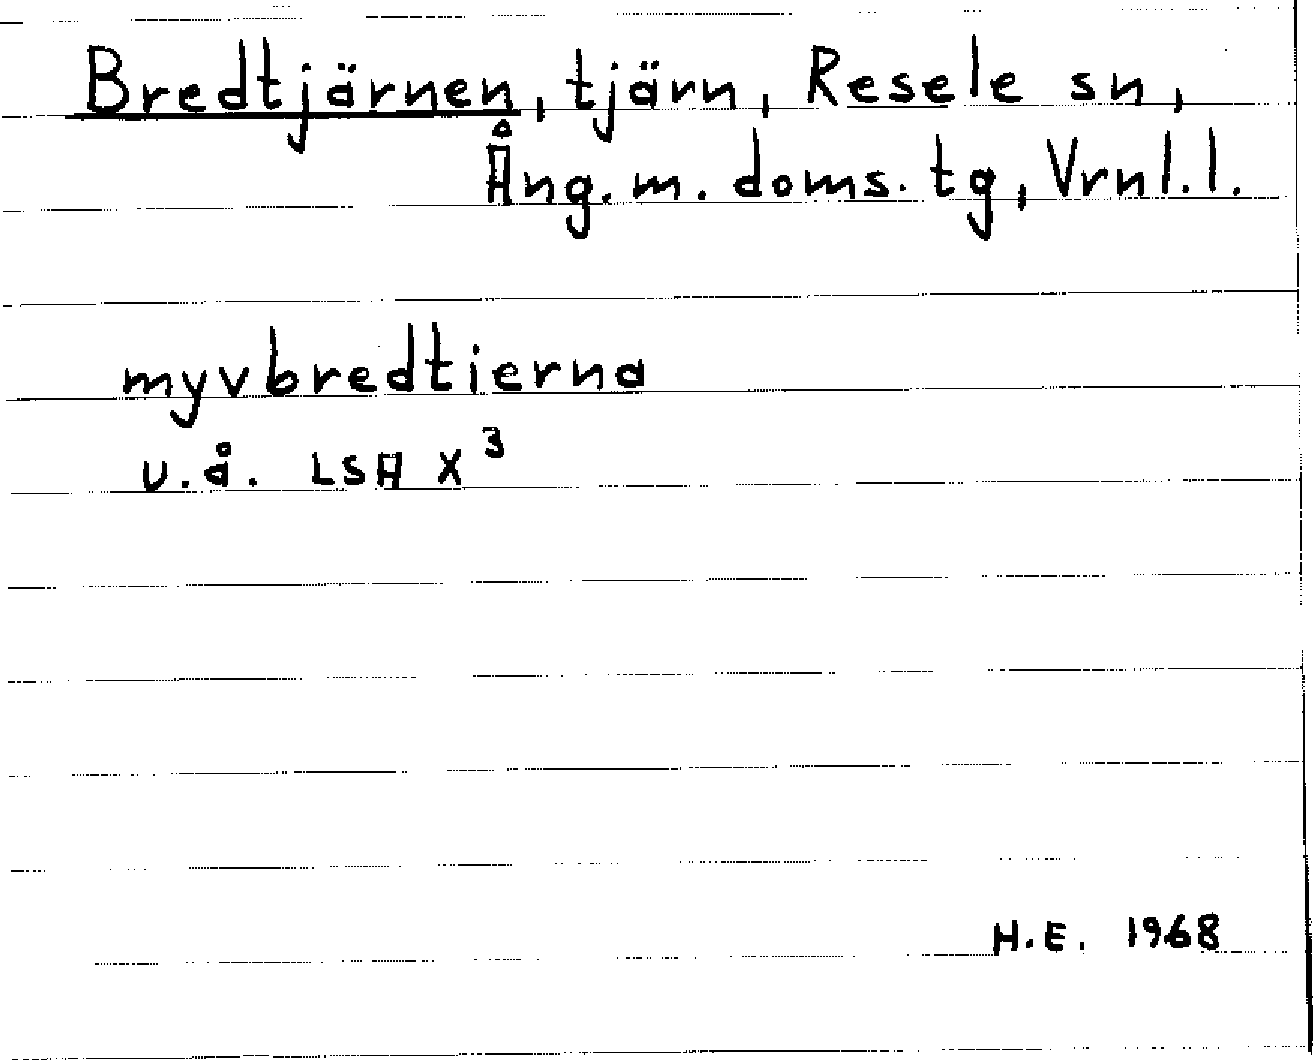 Bredtjärnen, tjärn, Resele sn,
Ång. m. doms. tg, Vrnl. l.
myvbredtierna
u.å. LSA X³
H.E. 1968